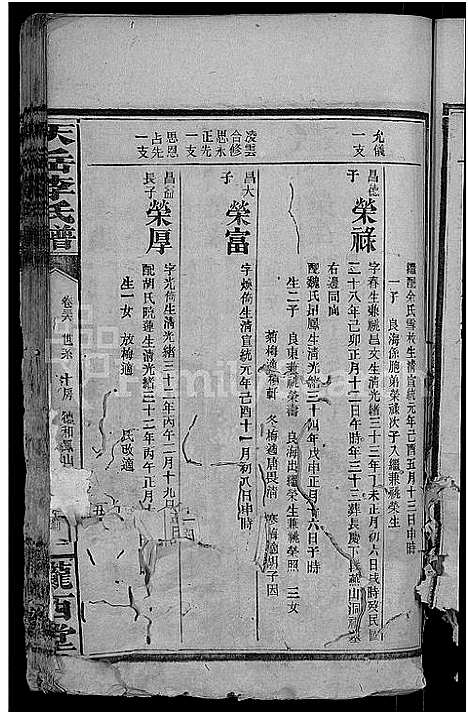 繼配余氏雪英生清宣統元年己酉五月十三日申時
一子 良海係胞弟榮祿次子入繼兼祧榮生
允儀
一支
昌德
子
榮祿
字春生兼祧昌文生清光緒三十三年丁未正月初六日戌時歿民國
二十八年己卯正月十二日午時年三十三葬長慶下
右邊同向
配魏氏 鳳生清光緒三十四年戊申正月十六日子時
生二子 良東兼祧榮壽 良海出繼榮生兼祧榮照 三女
菊梅適 軒 冬梅適 畏清 寒梅適 子因
凌雲
合修
思永
正先
昌大
子
榮富
字煥儔生清宣統元年己酉十一月初八日申時
思恩
占先
一支
昌益
長子
榮厚
字光儔生清光緒三十二年丙午二月十九
配胡氏院蓮生清光緒三十二年丙午正月
生一女 放梅適 民政適
天岳李氏譜
卷 世系 房 德和
隴西堂
FamilySearch